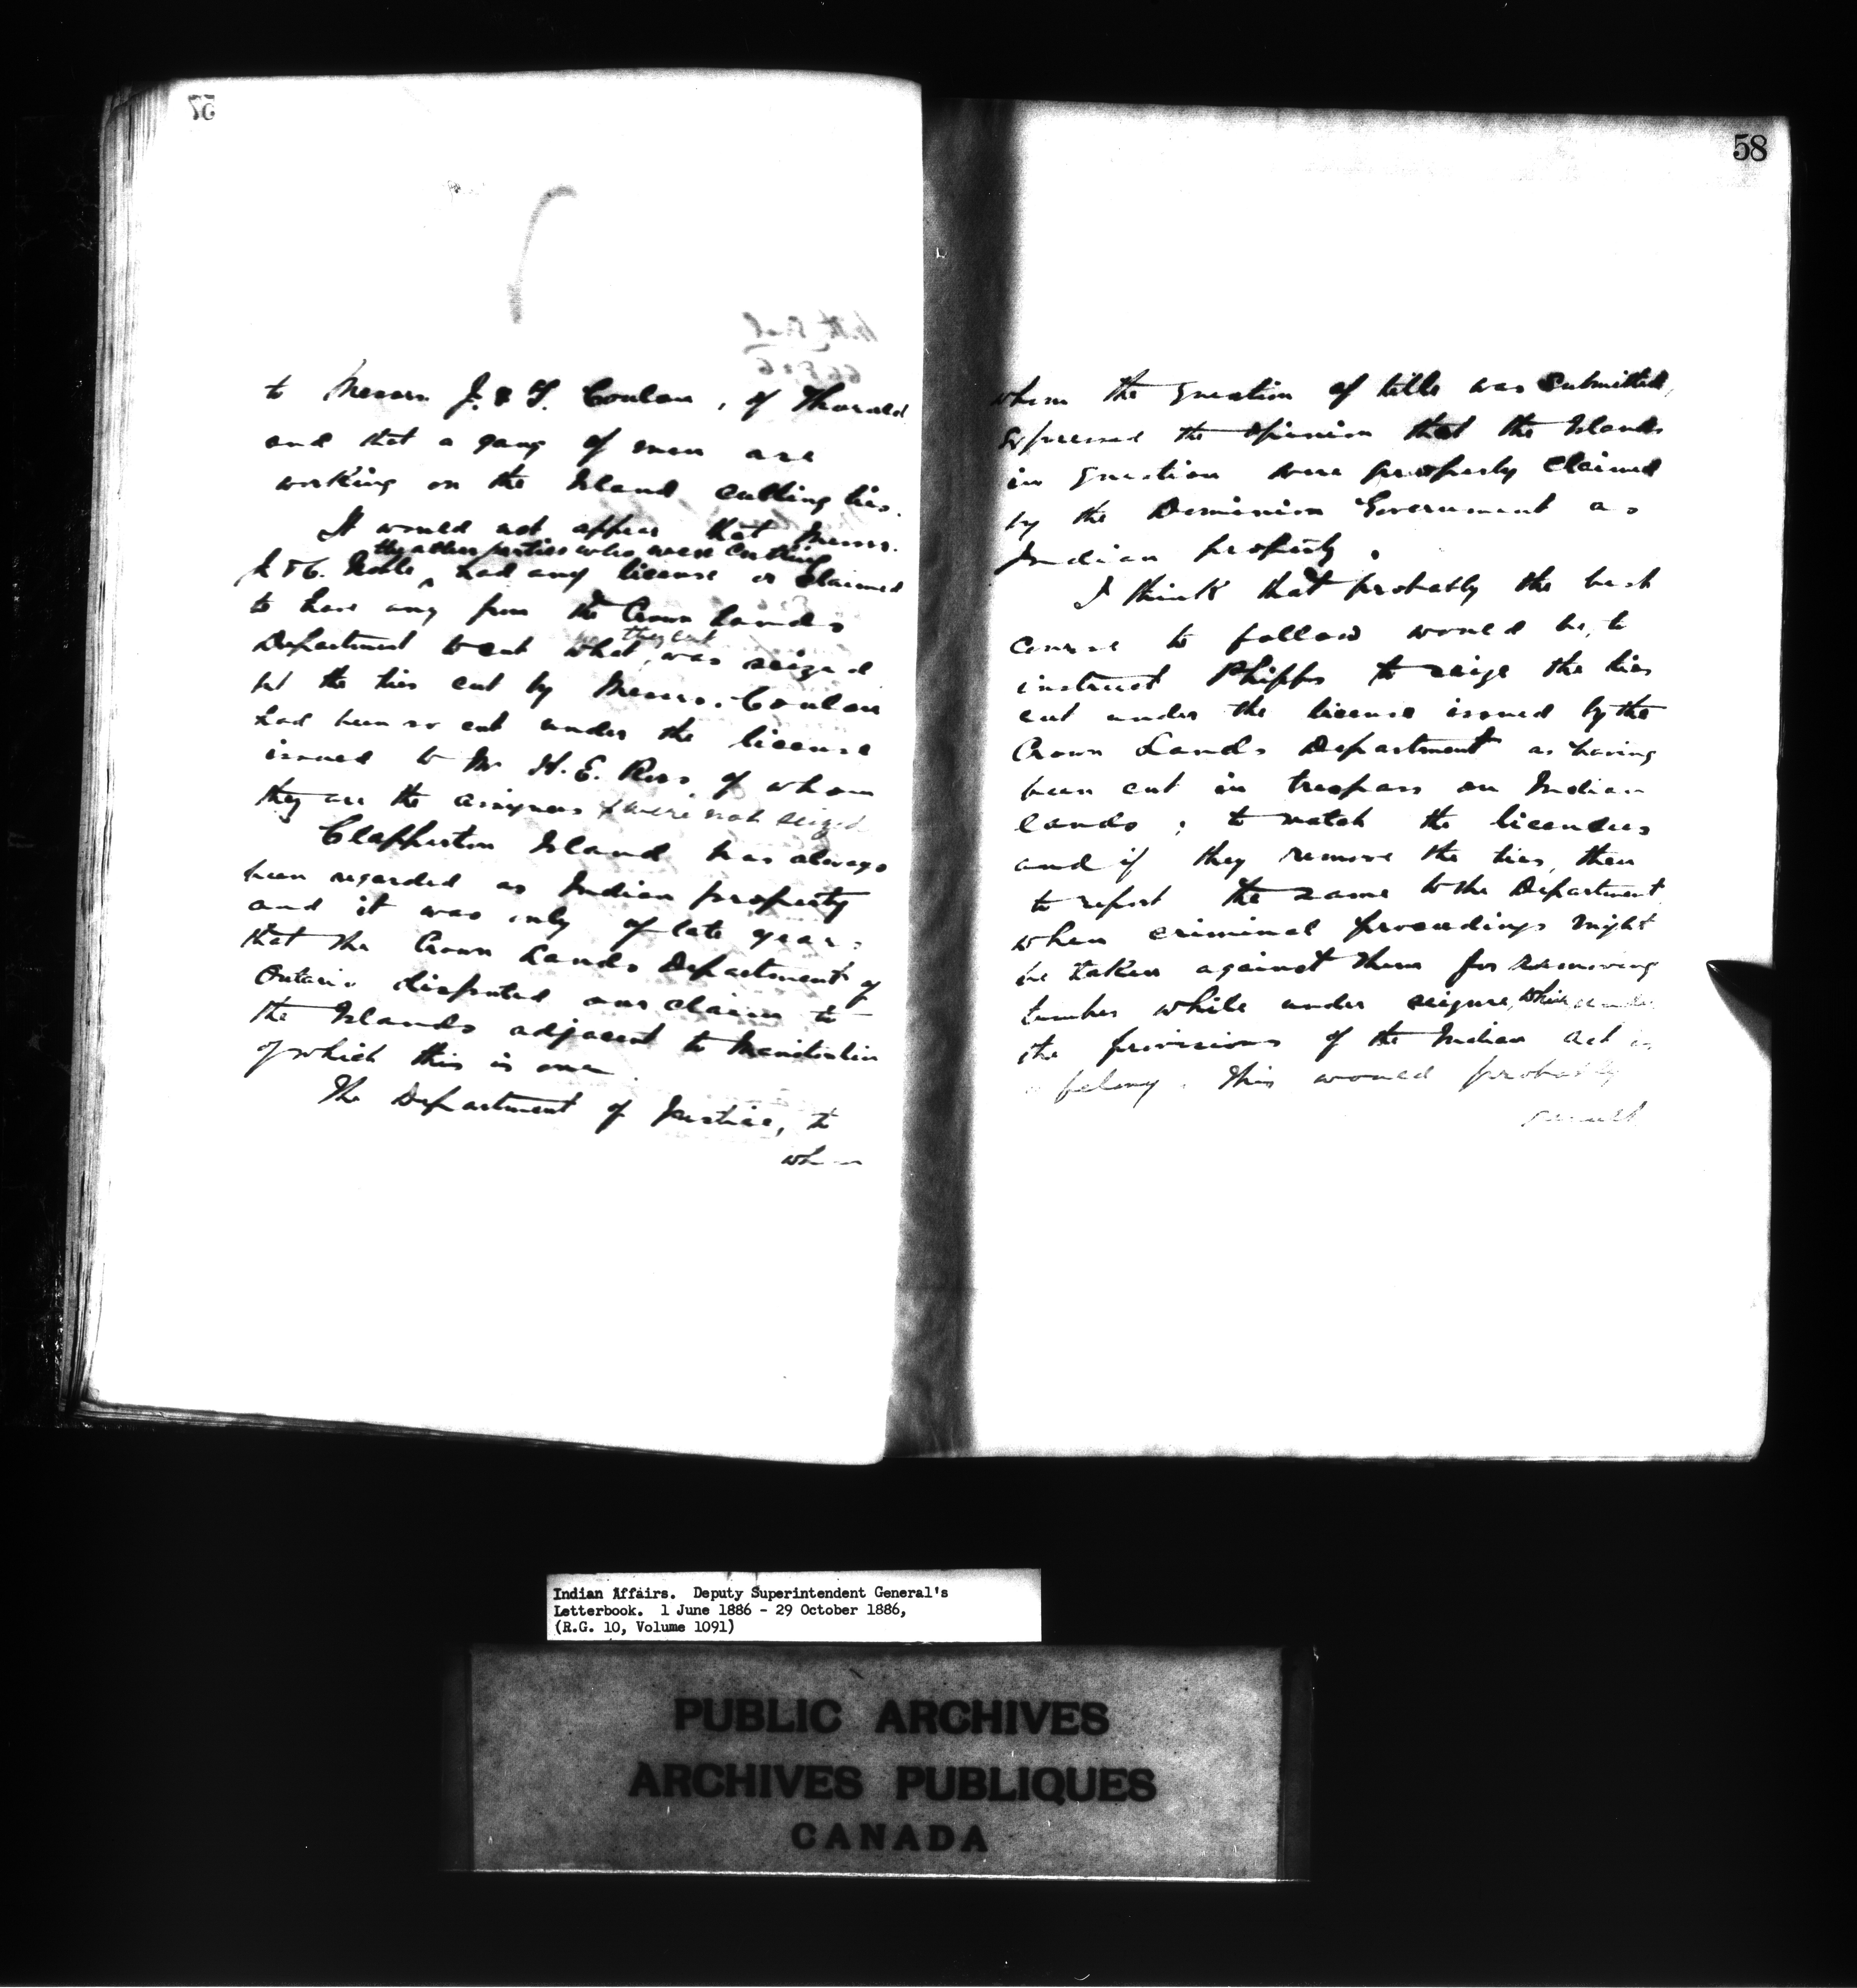 57
to Messrs J. & T. Conlon, of Thorold
and that a gang of men are
working on the Island cutting ties.
It would not appear that Messrs.
J & C. Noble, the other parties who were cutting had any license or claimed
to have any from the Crown Lands
Department to cut what they cut was seized
but the ties cut by Messrs. Conlon
had been so cut under the license
issued to Mr H. E. Ross, of whom
they are the assignees & were not seized
Clapperton Island has always
been regarded as Indian property
and it was only of late years
that the Crown Lands Department of
Ontario disputed our claim to
the Islands adjacent to Manitoulin
of which this is one.
The Department of Justice, to
whom
58
whom the question of title was submitted,
expressed the opinion that the Islands
in question were properly claimed
by the Dominion Government as
Indian property.
I think that probably the best
course to follow would be, to
instruct Phipps to seize the ties
cut under the license issued by the
Crown Lands Department as having
been cut in trespass on Indian
lands; to watch the licensees
and if they remove the ties, then
to report the same to the Department,
when criminal proceedings might
be taken against them for removing
timber while under seizure, which under
the provisions of the Indian Act is
a felony. This would probably
result
Indian Affairs. Deputy Superintendent General's
Letterbook. 1 June 1886 - 29 October 1886,
(R.G. 10, Volume 1091)
PUBLIC ARCHIVES
ARCHIVES PUBLIQUES
CANADA